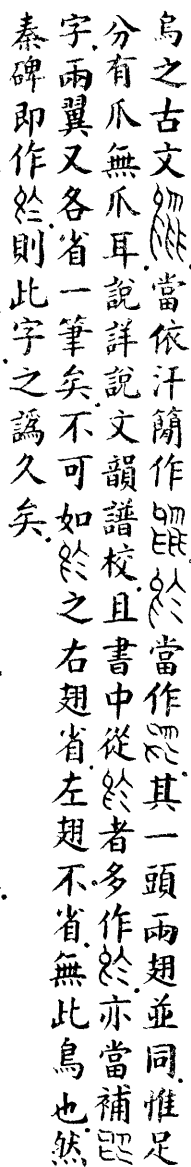 烏之古文當依汗簡作當作其一頭兩翅並同惟足
分有爪無爪耳說詳說文韻譜校且書中從者多作亦當補
字兩翼又各省一筆矣不可如之右翅省左翅不省無此鳥也然
秦碑即作則此字之譌久矣